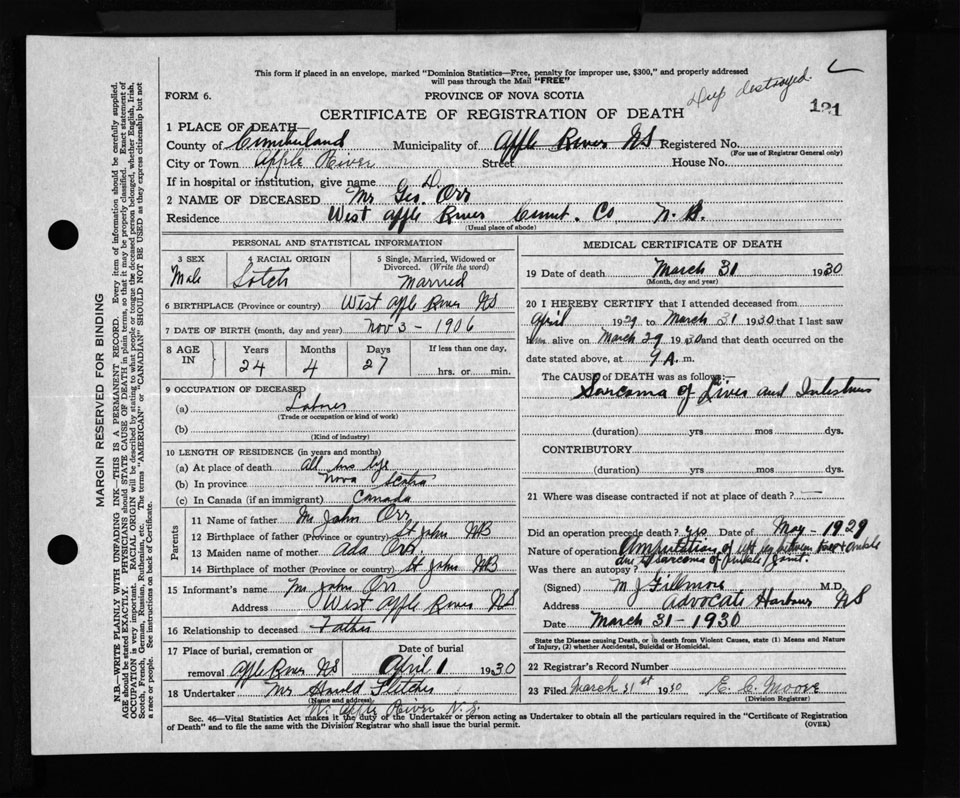 This form if placed in an envelope, marked "Dominion Statistics—Free, penalty for improper use, $300," and properly addressed
will pass through the Mail "FREE"
Dup destroyed.
FORM 6.
PROVINCE OF NOVA SCOTIA
131
CERTIFICATE OF REGISTRATION OF DEATH
1 PLACE OF DEATH—
County of Cumberland Municipality of Apple River NS Registered No.
(For use of Registrar General only)
City or Town Apple River Street House No.
If in hospital or institution, give name
2 NAME OF DECEASED Mr Geo. D. Orr
Residence West Apple River Cumt. Co N. S.
(Usual place of abode)
PERSONAL AND STATISTICAL INFORMATION
3 SEX
Male
4 RACIAL ORIGIN
Scotch
5 Single, Married, Widowed or
Divorced. (Write the word)
Married
6 BIRTHPLACE (Province or country) West Apple River NS
7 DATE OF BIRTH (month, day and year) Nov 3 - 1906
8 AGE
IN
Years Months Days
24 4 27
If less than one day,
hrs. or min.
9 OCCUPATION OF DECEASED
(a) Laborer
(Trade or occupation or kind of work)
(b)
(Kind of industry)
10 LENGTH OF RESIDENCE (in years and months)
(a) At place of death All his life
(b) In province Nova Scotia
(c) In Canada (if an immigrant) Canada
Parents
11 Name of father Mr John Orr
12 Birthplace of father (Province or country) St John NB
13 Maiden name of mother Ada Orr.
14 Birthplace of mother (Province or country) St John NB
15 Informant's name Mr John Orr
Address West Apple River NS
16 Relationship to deceased Father
17 Place of burial, cremation or
removal Apple River NS
Date of burial
April 1 1930
18 Undertaker Mr Harold Fletcher
(Name and address)
W. Apple River N.S.
MEDICAL CERTIFICATE OF DEATH
19 Date of death March 31 1930
(Month, day and year)
20 I HEREBY CERTIFY that I attended deceased from
April 1929 to March 31 1930 that I last saw
him alive on March 29 1930 and that death occurred on the
date stated above, at 9 A. m.
The CAUSE of DEATH was as follows:—
Sarcoma of Liver and Intestines
(duration) yrs mos dys.
CONTRIBUTORY
(duration) yrs mos dys.
21 Where was disease contracted if not at place of death? —
Did an operation precede death? Yes Date of May - 1929
Nature of operation Amputation of left leg between knee & ankle
due to sarcoma of ankle joint.
Was there an autopsy?
(Signed) M J Fillmore M.D.
Address Advocate Harbour NS
Date March 31 - 1930
State the Disease causing Death, or in death from Violent Causes, state (1) Means and Nature
of Injury, (2) whether Accidental, Suicidal or Homicidal.
22 Registrar's Record Number
23 Filed March 31st 1930 E. C. Moore
(Division Registrar)
Sec. 46—Vital Statistics Act makes it the duty of the Undertaker or person acting as Undertaker to obtain all the particulars required in the "Certificate of Registration
of Death" and to file the same with the Division Registrar who shall issue the burial permit.
(OVER)
MARGIN RESERVED FOR BINDING
N.B.—WRITE PLAINLY WITH UNFADING INK—THIS IS A PERMANENT RECORD. Every item of information should be carefully supplied.
AGE should be stated EXACTLY. PHYSICIANS should STATE CAUSE OF DEATH in plain terms, so that it may be properly classified. Exact statement of
OCCUPATION is very important. RACIAL ORIGIN will be described by stating to what people or tongue the deceased person belonged, whether English, Irish,
Scotch, French, German, Russian, Ruthenian, etc. The terms "AMERICAN" or "CANADIAN" SHOULD NOT BE USED as they express citizenship but not
a race or people. See instructions on back of Certificate.